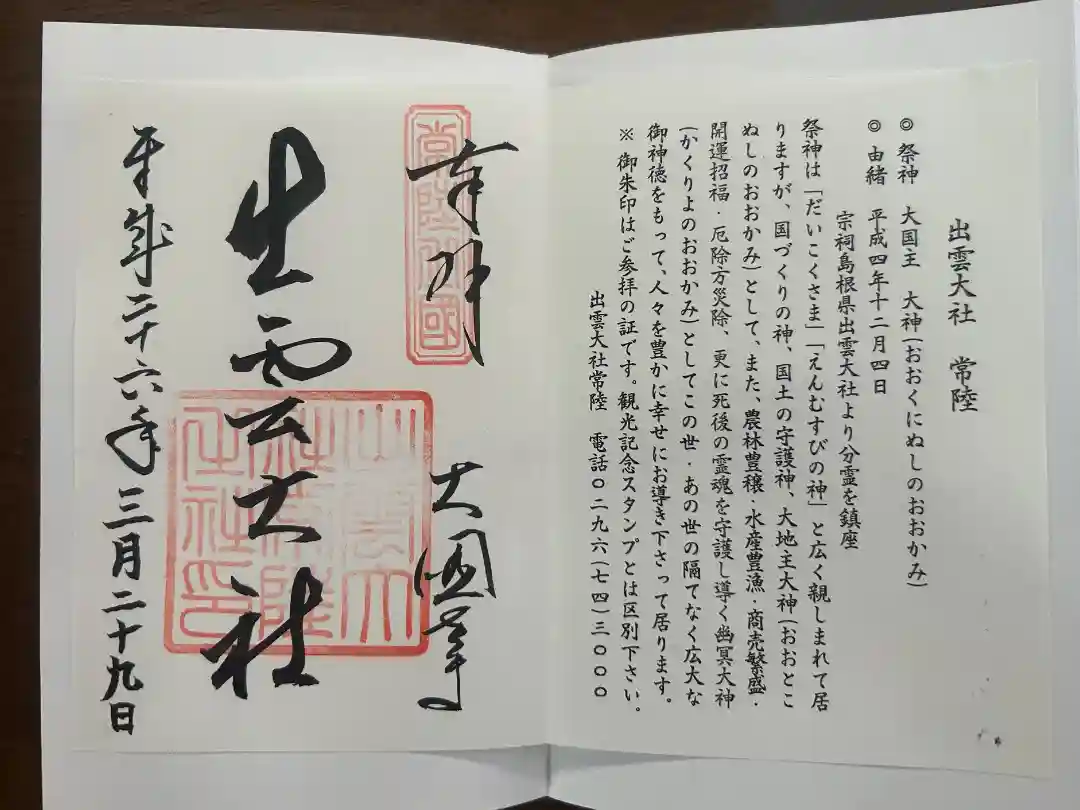 出雲大社 常陸
◎ 祭神 大国主 大神(おおくにぬしのおおかみ)
◎ 由緒 平成四年十二月四日
宗祠島根県出雲大社より分霊を鎮座
祭神は「だいこくさま」「えんむすびの神」と広く親しまれて居
りますが、国づくりの神、国土の守護神、大地主大神(おおとこ
ぬしのおおかみ)として、また、農林豊穣・水産豊漁・商売繁盛・
開運招福・厄除方災除、更に死後の霊魂を守護し導く幽冥大神
(かくりよのおおかみ)としてこの世・あの世の隔てなく広大な
御神徳をもって、人々を豊かに幸せにお導き下さって居ります。
※ 御朱印はご参拝の証です。観光記念スタンプとは区別下さい。
出雲大社常陸 電話〇二九六(七四)三〇〇〇
奉拝
大國
出雲大社
出雲大
社常陸
社印
平成二十六年三月二十九日